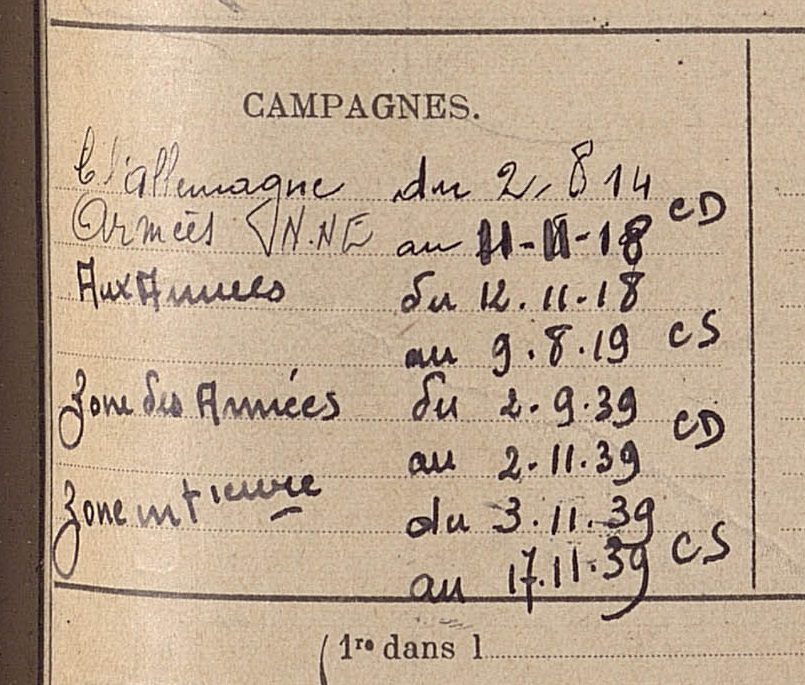 CAMPAGNES.
C. l'allemagne du 2. 8 14
Armées N. NE au 11-11-18 CD
Aux Armées du 12.11.18
au 9.8.19 CS
Zone des Armées du 2.9.39
au 2.11.39 CD
Zone intieure du 3.11.39
au 17.11.39 CS
1re dans l